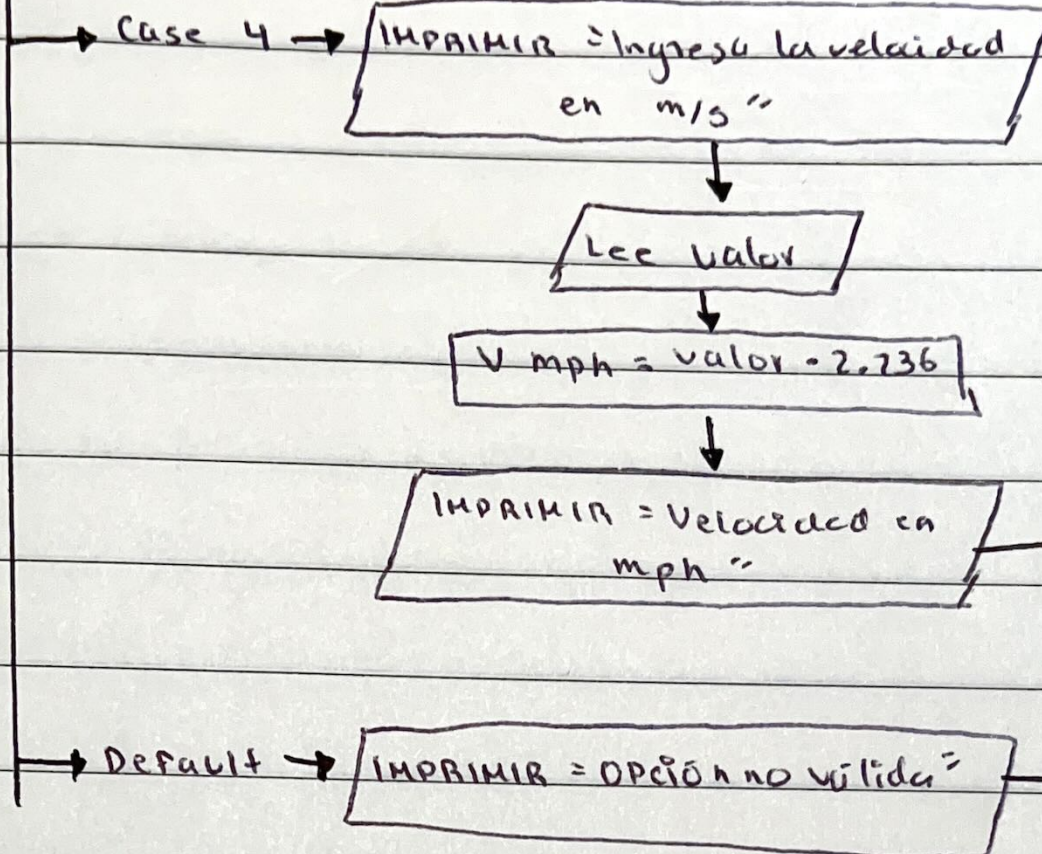 Case 4
IMPRIMIR "Ingresa la velocidad
en m/s"
Lee valor
V mph = valor * 2.236
IMPRIMIR "Velocidad en
mph"
Default
IMPRIMIR "Opción no válida"